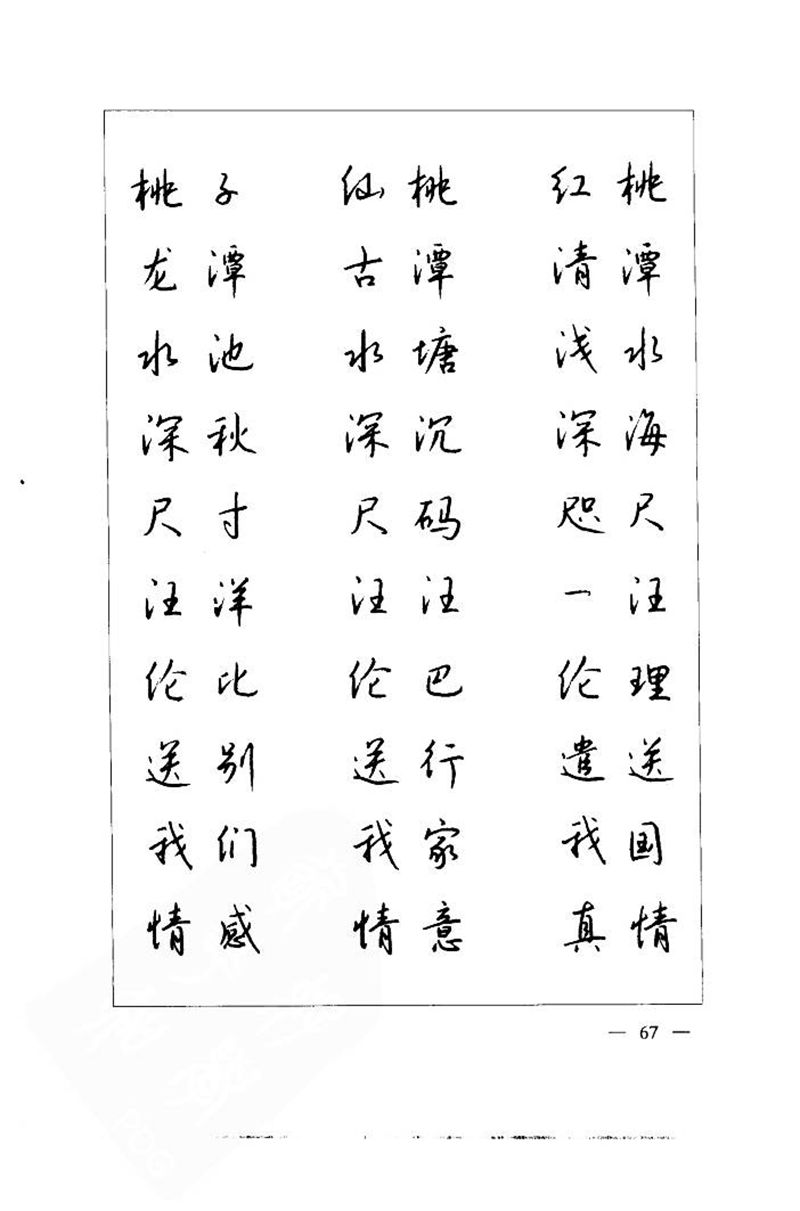 桃潭水海尺汪理送国情
红清浅深咫一伦遣我真
桃潭塘沉码汪巴行家意
仙古水深尺汪伦送我情
子潭池秋寸洋比别们感
桃龙水深尺汪伦送我情
— 67 —